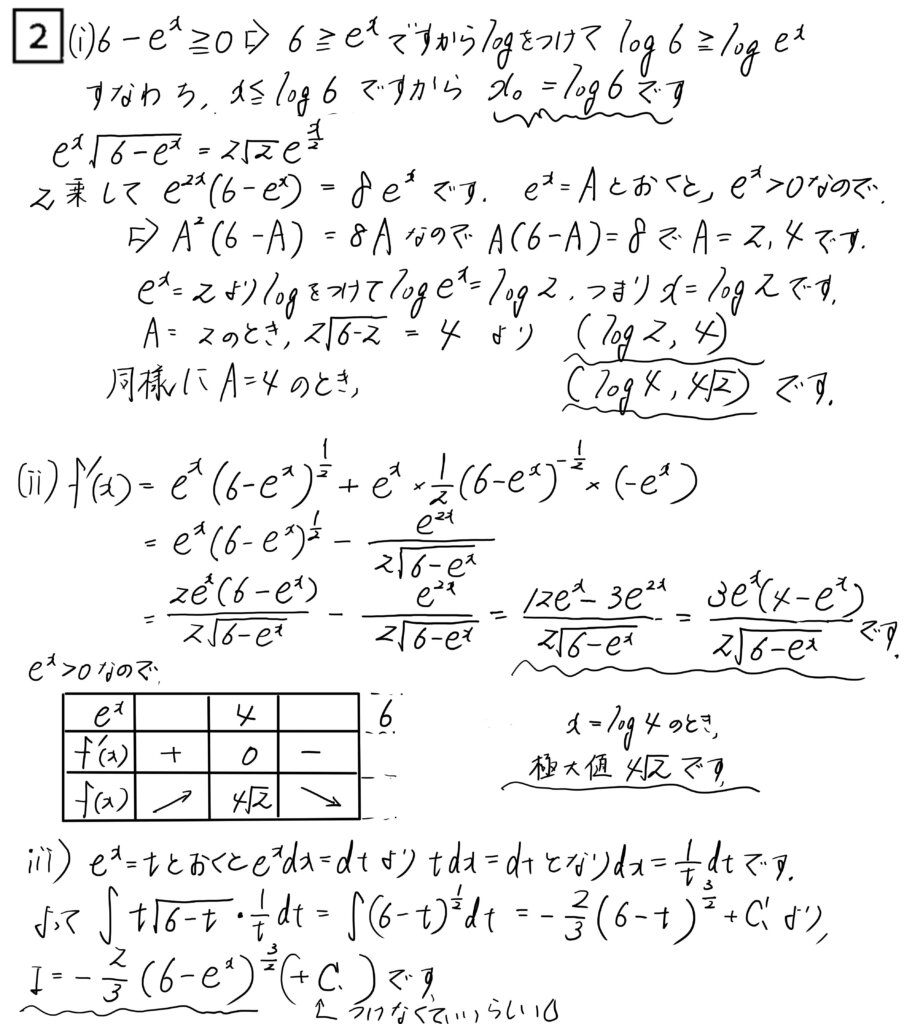 2 (i) 6 - e^x ≧ 0 ⇨ 6 ≧ e^x ですからlogをつけて log 6 ≧ log e^x
すなわち, x ≦ log 6 ですから x₀ = log 6 です
e^x √(6 - e^x) = 2√2 e^(x/2)
2乗して e^(2x)(6 - e^x) = 8e^x です. e^x = A とおくと, e^x > 0 なので,
⇨ A²(6 - A) = 8A なので A(6 - A) = 8 で A = 2, 4 です.
e^x = 2 より log をつけて log e^x = log 2. つまり x = log 2 です.
A = 2 のとき, 2√(6-2) = 4 より (log 2, 4)
同様に A = 4 のとき, (log 4, 4√2) です.
(ii) f'(x) = e^x (6 - e^x)^(1/2) + e^x × 1/2 (6 - e^x)^(-1/2) × (-e^x)
= e^x (6 - e^x)^(1/2) - e^(2x) / 2√(6 - e^x)
= 2e^x(6 - e^x) / 2√(6 - e^x) - e^(2x) / 2√(6 - e^x) = (12e^x - 3e^(2x)) / 2√(6 - e^x) = 3e^x(4 - e^x) / 2√(6 - e^x) です.
e^x > 0 なので,
e^x 4 6
f'(x) + 0 -
f(x) ↗ 4√2 ↘
x = log 4 のとき,
極大値 4√2 です,
iii) e^x = t とおくと e^x dx = dt より t dx = dt となり dx = 1/t dt です.
よって ∫ t√(6 - t) · 1/t dt = ∫ (6 - t)^(1/2) dt = - 2/3 (6 - t)^(3/2) + C. より,
I = - 2/3 (6 - e^x)^(3/2) (+ C.) です
↑ つけなくていいらしい